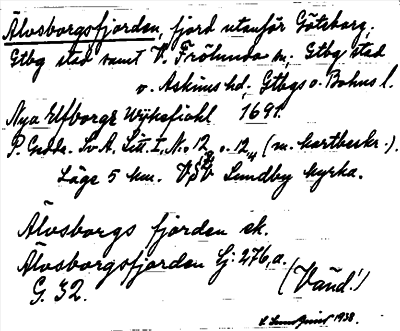 Älvsborgsfjorden, fjord utanför Göteborg,
Gtbg stad samt V. Frölunda sn; Gtbg stad
o. Askims hd; Gtbgs o. Bohus l.
Nya Elfborgz Wijksfiohl 1691.
P. Gedda. Sv A. Litt. I, No 12 o. 12 (m. kartbeskr.).
Läge 5 km. VSV Lundby kyrka.
Älvsborgs fjorden ek.
Älvsborgsfjorden Lj: 276, a.
G. 32.
(Vänd!)
1938.